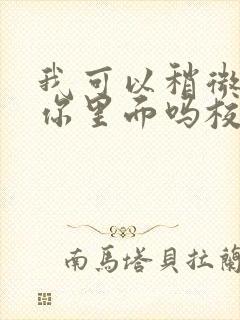 我可以稍微
你里而吗板
南馬塔貝拉蘭